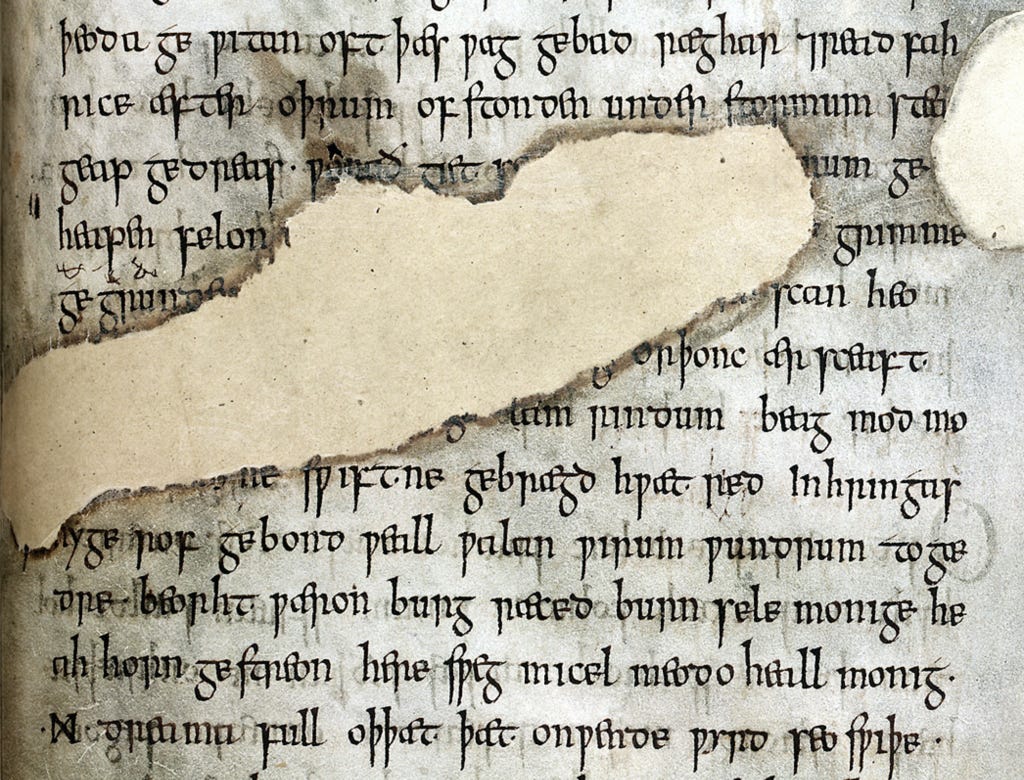 þeoda ge ƿitan oft þæs ƿag gebad ræghar ⁊read fah
rice æfter oþrum of stonden under stormum stea
geap gedreas · giet num ge
heaƿen felon grimme
scan heo
orþonc ær sceaft
lam rindum beag mod mo
ne sƿiftne gebrægd hƿæt red Inhringas
hyge rof gebond ƿeall ƿalan ƿirum ƿundrum toge
dre · beorht ƿæron burg ræced burn sele monige he
ah horn gestreon here sƿeg micel meodo heall monig ·
·ᛗ· dreama full oþþæt þæt onƿende ƿyrd seo sƿiþe ·